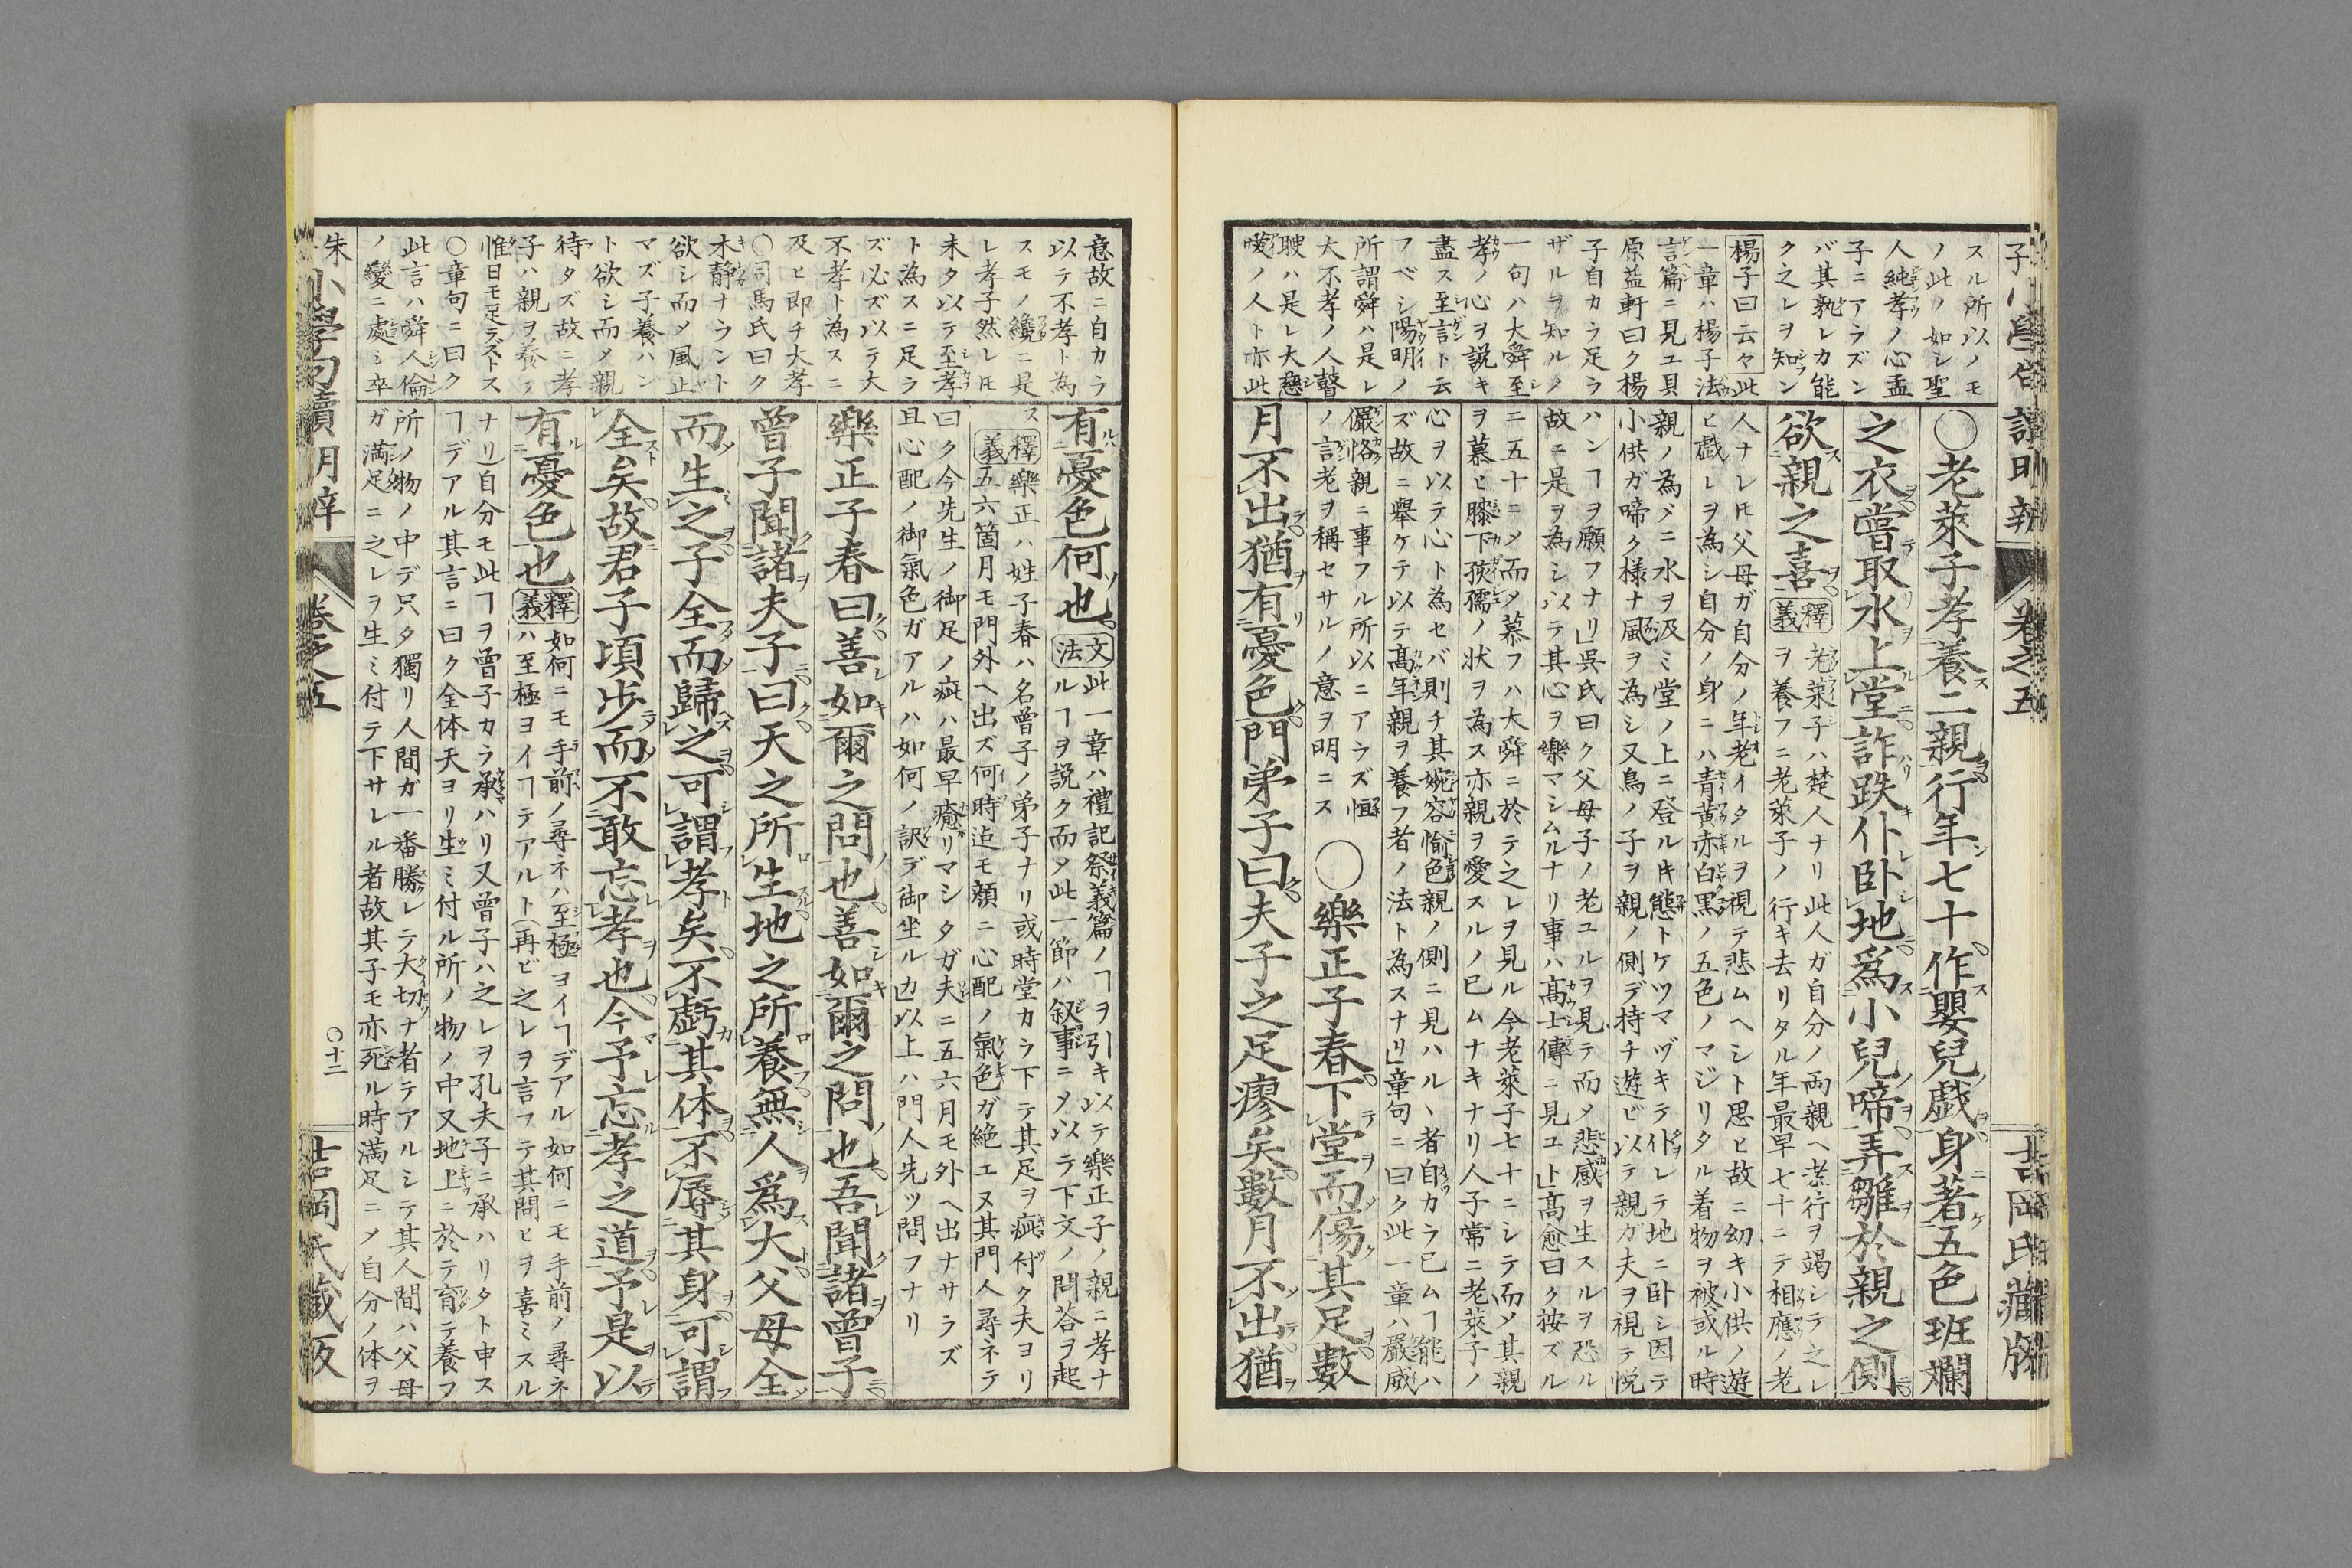 スル所以ノモ
ノ此ノ如シ聖
人純孝ノ心孟
子ニアラズン
バ其孰レカ能
ク之レヲ知ン
楊子曰云々此
一章ハ楊子法
言篇ニ見ユ具
原益軒曰ク楊
子自カラ足ラ
ザルヲ知ルノ
一句ハ大舜至
孝ノ心ヲ説キ
盡ス至言ト云
フベシ陽明ノ
所謂舜ハ是レ
大不孝ノ人瞽
瞍ハ是レ大慈
愛ノ人ト亦此
〇老萊子孝養二親行年七十作嬰兒戯身著五色班斕
之衣嘗取水上堂詐跌仆卧地爲小兒啼弄雛於親之側
欲親之喜
釋義
老萊子ハ楚人ナリ此人ガ自分ノ両親ヘ孝行ヲ竭シテ之レ
ヲ養フニ老萊子ノ行キ去リタル年最早七十ニテ相應ノ老
人ナレ𪜈父母ガ自分ノ年老イタルヲ視テ悲ムヘシト思ヒ故ニ幼キ小供ノ遊
ヒ戯レヲ為シ自分ノ身ニハ青黄赤白黒ノ五色ノマジリタル着物ヲ被或ル時
親ノ為メニ水ヲ汲ミ堂ノ上ニ登ル𬼀態トケツマヅキテ仆レテ地ニ卧シ因テ
小供ガ啼ク様ナ風ヲ為シ又鳥ノ子ヲ親ノ側デ持チ遊ビ以テ親ガ夫ヲ視テ悦
ハンヿヲ願フナリ」呉氏曰ク父母子ノ老ユルヲ見テ而〆悲感ヲ生スルヲ恐ル
故ニ是ヲ為シ以テ其心ヲ樂マシムルナリ事ハ髙士傳ニ見ユト」髙愈曰ク按ズル
ニ五十ニ〆而〆慕フハ大舜ニ於テ之レヲ見ル今老萊子七十ニシテ而〆其親
ヲ慕ヒ膝下孩孺ノ状ヲ為ス亦親ヲ愛スルノ已ムナキナリ人子常ニ老萊子ノ
心ヲ以テ心ト為セバ則チ其婉容愉色親ノ側ニ見ハルヽ者自カラ已ムヿ能ハ
ズ故ニ舉ケテ以テ髙年親ヲ養フ者ノ法ト為スナリ」章句ニ曰ク此一章ハ嚴威
儼恪親ニ事フル所以ニアラズ恒
ノ言老ヲ稱セサルノ意ヲ明ニス
〇樂正子春下堂而傷其足數
月不出猶有憂色門弟子曰夫子之足瘳矣數月不出猶
子小學句讀明辨
卷之五
吉岡氏藏版
意故ニ自カラ
以テ不孝ト為
スモノ纔ニ是
レ孝子然レ𪜈
未タ以テ至孝
ト為スニ足ラ
ズ必ズ以テ大
不孝ト為スニ
及ヒ即チ大孝
〇司馬氏曰ク
木静ナラント
欲シ而〆風止
マズ子養ハン
ト欲シ而〆親
待タズ故ニ孝
子ハ親ヲ養フ
惟日モ足ラズトス
〇章句ニ曰ク
此言ハ舜人倫
ノ變ニ處シ卒
有憂色何也
文法
此一章ハ禮記祭義篇ノヿヲ引キ以テ樂正子ノ親ニ孝ナ
ルヿヲ説ク而〆此一節ハ叙事ニ〆以テ下文ノ問荅ヲ起
ス
釋義
樂正ハ姓子春ハ名曾子ノ弟子ナリ或時堂カラ下テ其足ヲ疵付ク夫ヨリ
五六箇月モ門外ヘ出ズ何時迠モ顔ニ心配ノ氣色ガ絶エヌ其門人尋ネテ
曰ク今先生ノ御足ノ疵ハ最早癒リマシタガ夫ニ五六月モ外ヘ出ナサラズ
且心配ノ御氣色ガアルハ如何ノ訳デ御坐ルカ以上ハ門人先ツ問フナリ
樂正子春曰善如爾之問也善如爾之問也吾聞諸曾子
曾子聞諸夫子曰天之所生地之所養無人爲大父母全
而生之子全而歸之可謂孝矣不虧其体不辱其身可謂
全矣故君子頃步而不敢忘孝也今予忘孝之道予是以
有憂色也
釋義
如何ニモ手前ノ尋ネハ至極ヨイヿデアル如何ニモ手前ノ尋ネ
ハ至極ヨイヿテアルト(再ビ之レヲ言フテ其問ヒヲ喜ミスル
ナリ)自分モ此ヿヲ曾子カラ承ハリ又曾子ハ之レヲ孔夫子ニ承ハリタト申ス
ヿデアル其言ニ曰ク全体天ヨリ生ミ付ル所ノ物ノ中又地上ニ於テ育テ養フ
所ノ物ノ中デ只タ獨リ人間ガ一番勝レテ大切ナ者テアルシテ其人間ハ父母
ガ満足ニ之レヲ生ミ付テ下サレル者故其子モ亦死ル時満足ニ〆自分ノ体ヲ
朱小學句讀明辨
卷之五
〇十二
吉岡氏藏版